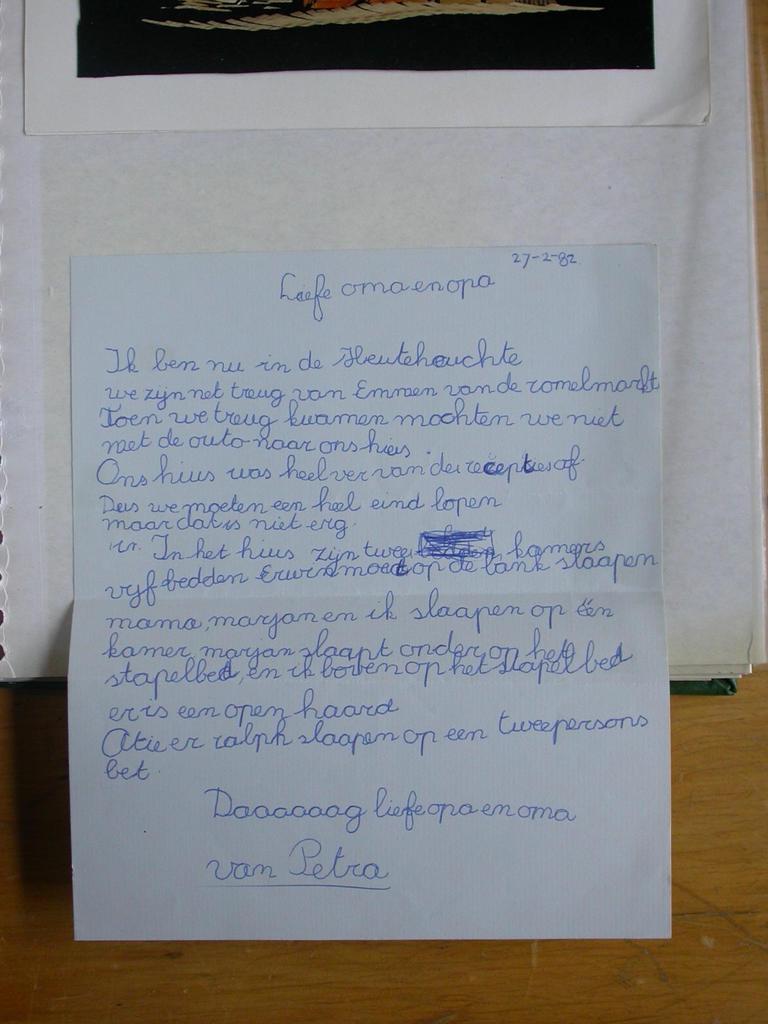 27-2-82
Liefe oma en opa
Ik ben nu in de Heutehauchte
we zijn net treug van Emmen van de romelmarkt
Toen we treug kwamen mochten we niet
met de outo naar ons hius.
Ons hius was heel ver van de recepties af
Deus we moeten een heel eind lopen
maar dat is niet erg.
In het hius zijn twee kamers
vyf bedden Erwin moet op de bank slaapen
mama, marjan en ik slaapen op één
kamer, marjan slaapt onder op het
stapelbed, en ik boven op het stapelbed
er is een open haard
Atie er ralph slaapen op een tweepersons
bet.
Daaaaaag liefe opa en oma
van Petra